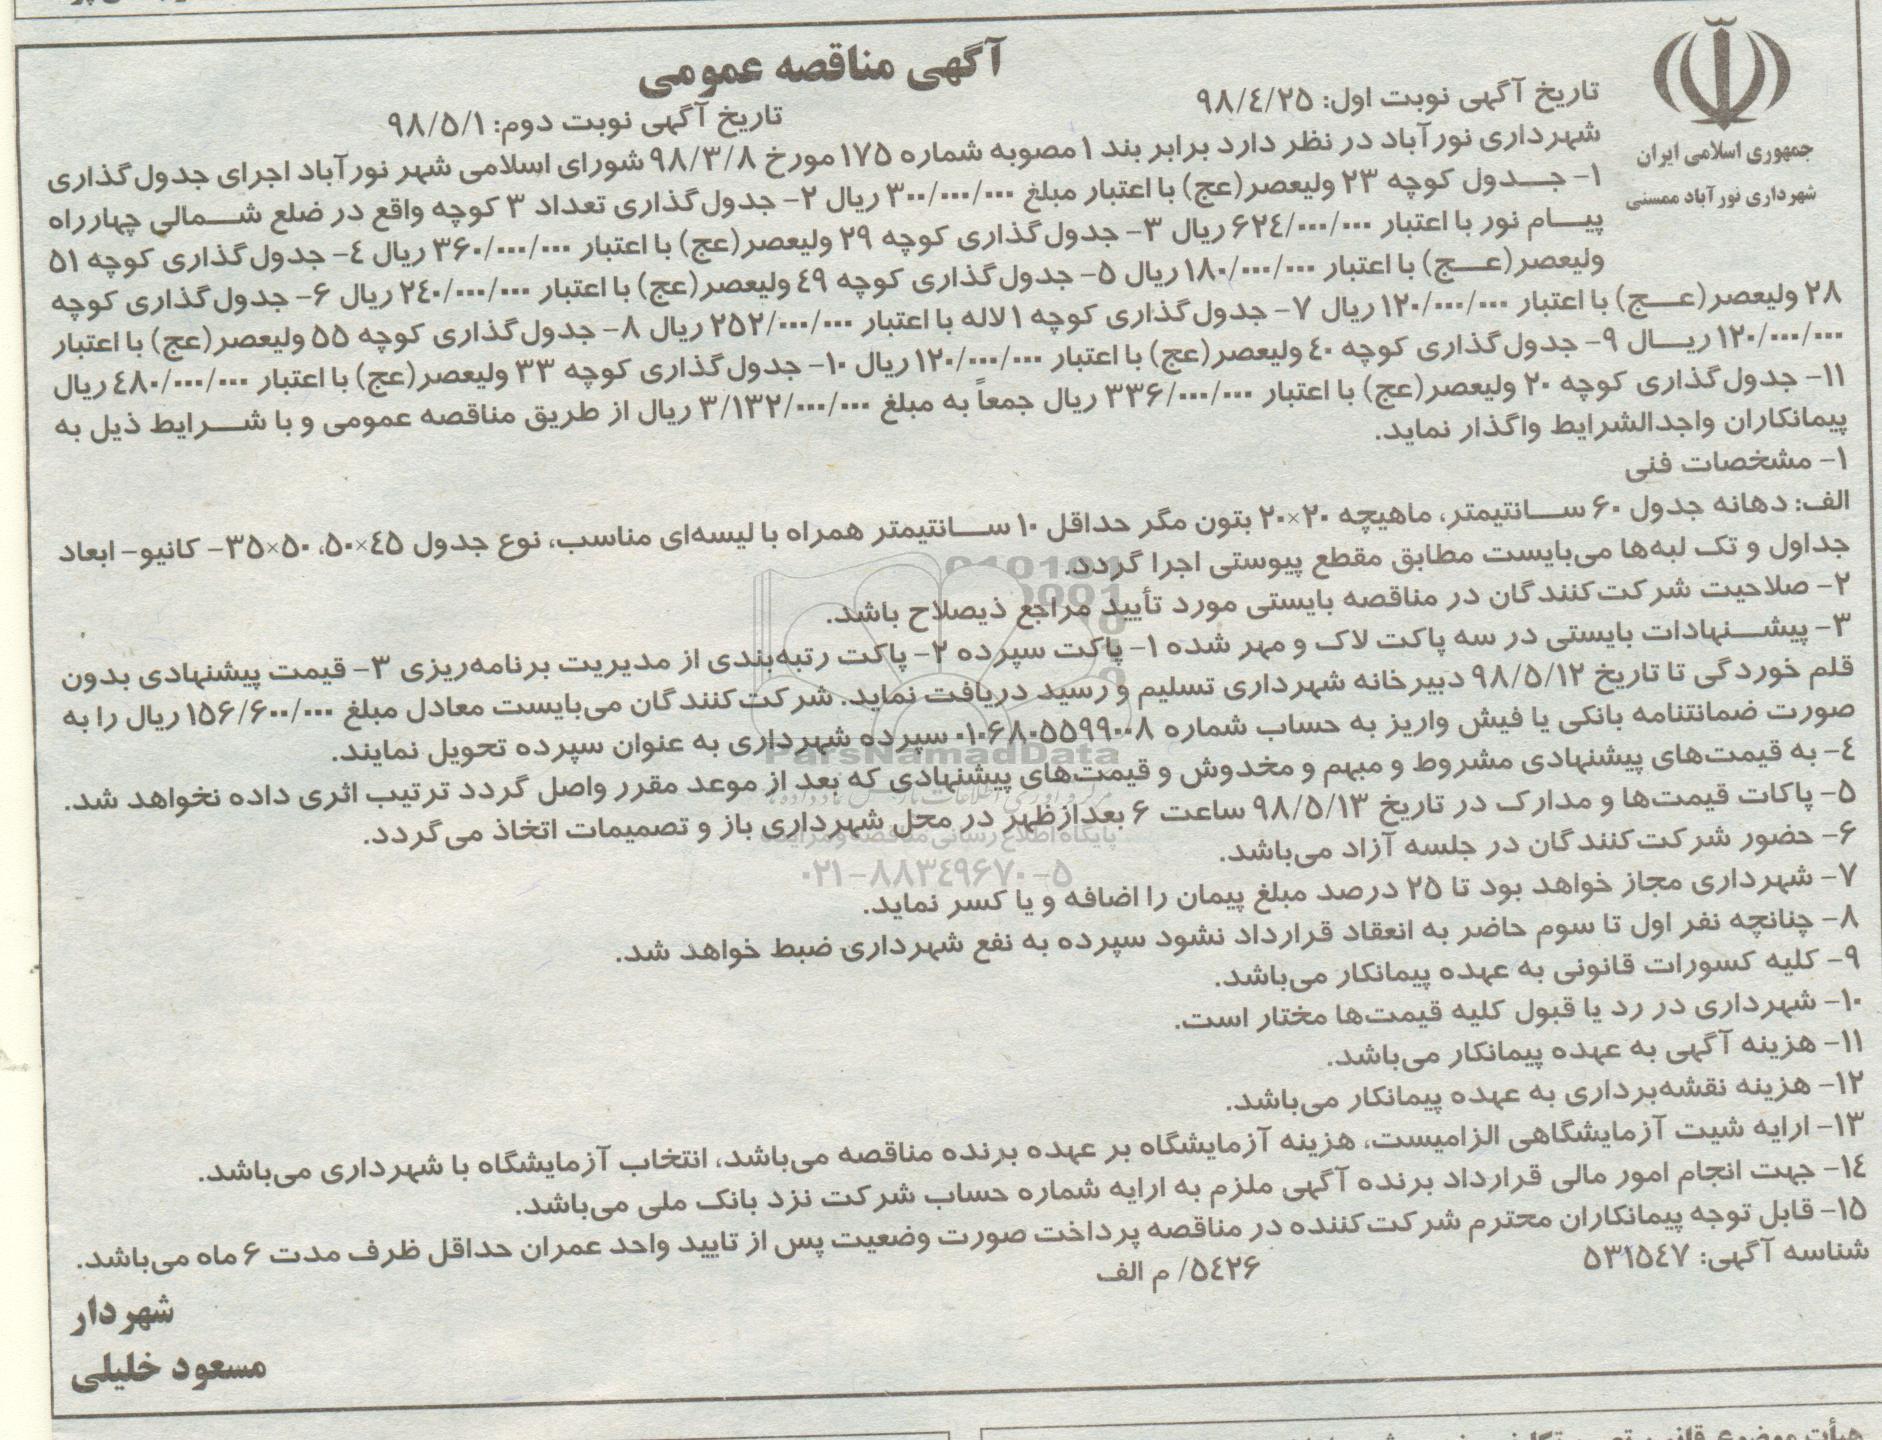 آگهی مناقصه عمومی
جمهوری اسلامی ایران
شهرداری نورآباد ممسنی
تاریخ آگهی نوبت اول: ۹۸/٤/۲۵
تاریخ آگهی نوبت دوم: ۹۸/۵/۱
شهرداری نورآباد در نظر دارد برابر بند ۱ مصوبه شماره ۱۷۵ مورخ ۹۸/۳/۸ شورای اسلامی شهر نورآباد اجرای جدول‌گذاری
۱- جدول کوچه ۲۳ ولیعصر(عج) با اعتبار مبلغ ۳۰۰/۰۰۰/۰۰۰ ریال ۲- جدول‌گذاری تعداد ۳ کوچه واقع در ضلع شمالی چهارراه
پیام نور با اعتبار ۶۲٤/۰۰۰/۰۰۰ ریال ۳- جدول‌گذاری کوچه ۲۹ ولیعصر(عج) با اعتبار ۳۶۰/۰۰۰/۰۰۰ ریال ٤- جدول‌گذاری کوچه ۵۱
ولیعصر(عج) با اعتبار ۱۸۰/۰۰۰/۰۰۰ ریال ۵- جدول‌گذاری کوچه ٤۹ ولیعصر(عج) با اعتبار ۲٤۰/۰۰۰/۰۰۰ ریال ۶- جدول‌گذاری کوچه
۲۸ ولیعصر(عج) با اعتبار ۱۲۰/۰۰۰/۰۰۰ ریال ۷- جدول‌گذاری کوچه ۱ لاله با اعتبار ۲۵۲/۰۰۰/۰۰۰ ریال ۸- جدول‌گذاری کوچه ۵۵ ولیعصر(عج) با اعتبار
۱۲۰/۰۰۰/۰۰۰ ریال ۹- جدول‌گذاری کوچه ٤۰ ولیعصر(عج) با اعتبار ۱۲۰/۰۰۰/۰۰۰ ریال ۱۰- جدول‌گذاری کوچه ۳۳ ولیعصر(عج) با اعتبار ٤۸۰/۰۰۰/۰۰۰ ریال
۱۱- جدول‌گذاری کوچه ۲۰ ولیعصر(عج) با اعتبار ۳۳۶/۰۰۰/۰۰۰ ریال جمعاً به مبلغ ۳/۱۳۲/۰۰۰/۰۰۰ ریال از طریق مناقصه عمومی و با شرایط ذیل به
پیمانکاران واجدالشرایط واگذار نماید.
۱- مشخصات فنی
الف: دهانه جدول ۶۰ سانتیمتر، ماهیچه ۲۰×۲۰ بتون مگر حداقل ۱۰ سانتیمتر همراه با لیسه‌ای مناسب، نوع جدول ٤۵×۵۰، ۵۰×۳۵- کانیو- ابعاد
جداول و تک لبه‌ها می‌بایست مطابق مقطع پیوستی اجرا گردد.
۲- صلاحیت شرکت‌کنندگان در مناقصه بایستی مورد تأیید مراجع ذیصلاح باشد.
۳- پیشنهادات بایستی در سه پاکت لاک و مهر شده ۱- پاکت سپرده ۲- پاکت رتبه‌بندی از مدیریت برنامه‌ریزی ۳- قیمت پیشنهادی بدون
قلم خوردگی تا تاریخ ۹۸/۵/۱۲ دبیرخانه شهرداری تسلیم و رسید دریافت نماید. شرکت‌کنندگان می‌بایست معادل مبلغ ۱۵۶/۶۰۰/۰۰۰ ریال را به
صورت ضمانتنامه بانکی یا فیش واریز به حساب شماره ۰۱۰۶۸۰۵۵۹۹۰۰۸ سپرده شهرداری به عنوان سپرده تحویل نمایند.
٤- به قیمت‌های پیشنهادی مشروط و مبهم و مخدوش و قیمت‌های پیشنهادی که بعد از موعد مقرر واصل گردد ترتیب اثری داده نخواهد شد.
۵- پاکات قیمت‌ها و مدارک در تاریخ ۹۸/۵/۱۳ ساعت ۶ بعدازظهر در محل شهرداری باز و تصمیمات اتخاذ می‌گردد.
۶- حضور شرکت‌کنندگان در جلسه آزاد می‌باشد.
۷- شهرداری مجاز خواهد بود تا ۲۵ درصد مبلغ پیمان را اضافه و یا کسر نماید.
۸- چنانچه نفر اول تا سوم حاضر به انعقاد قرارداد نشود سپرده به نفع شهرداری ضبط خواهد شد.
۹- کلیه کسورات قانونی به عهده پیمانکار می‌باشد.
۱۰- شهرداری در رد یا قبول کلیه قیمت‌ها مختار است.
۱۱- هزینه آگهی به عهده پیمانکار می‌باشد.
۱۲- هزینه نقشه‌برداری به عهده پیمانکار می‌باشد.
۱۳- ارایه شیت آزمایشگاهی الزامیست، هزینه آزمایشگاه بر عهده برنده مناقصه می‌باشد، انتخاب آزمایشگاه با شهرداری می‌باشد.
۱٤- جهت انجام امور مالی قرارداد برنده آگهی ملزم به ارایه شماره حساب شرکت نزد بانک ملی می‌باشد.
۱۵- قابل توجه پیمانکاران محترم شرکت‌کننده در مناقصه پرداخت صورت وضعیت پس از تایید واحد عمران حداقل ظرف مدت ۶ ماه می‌باشد.
شناسه آگهی: ۵۳۱۵٤۷
۵٤۲۶/ م الف
شهردار
مسعود خلیلی
ParsNamadData
پایگاه اطلاع رسانی مناقصه و مزایده
۰۲۱-۸۸۳٤۹۶۷۰-۵